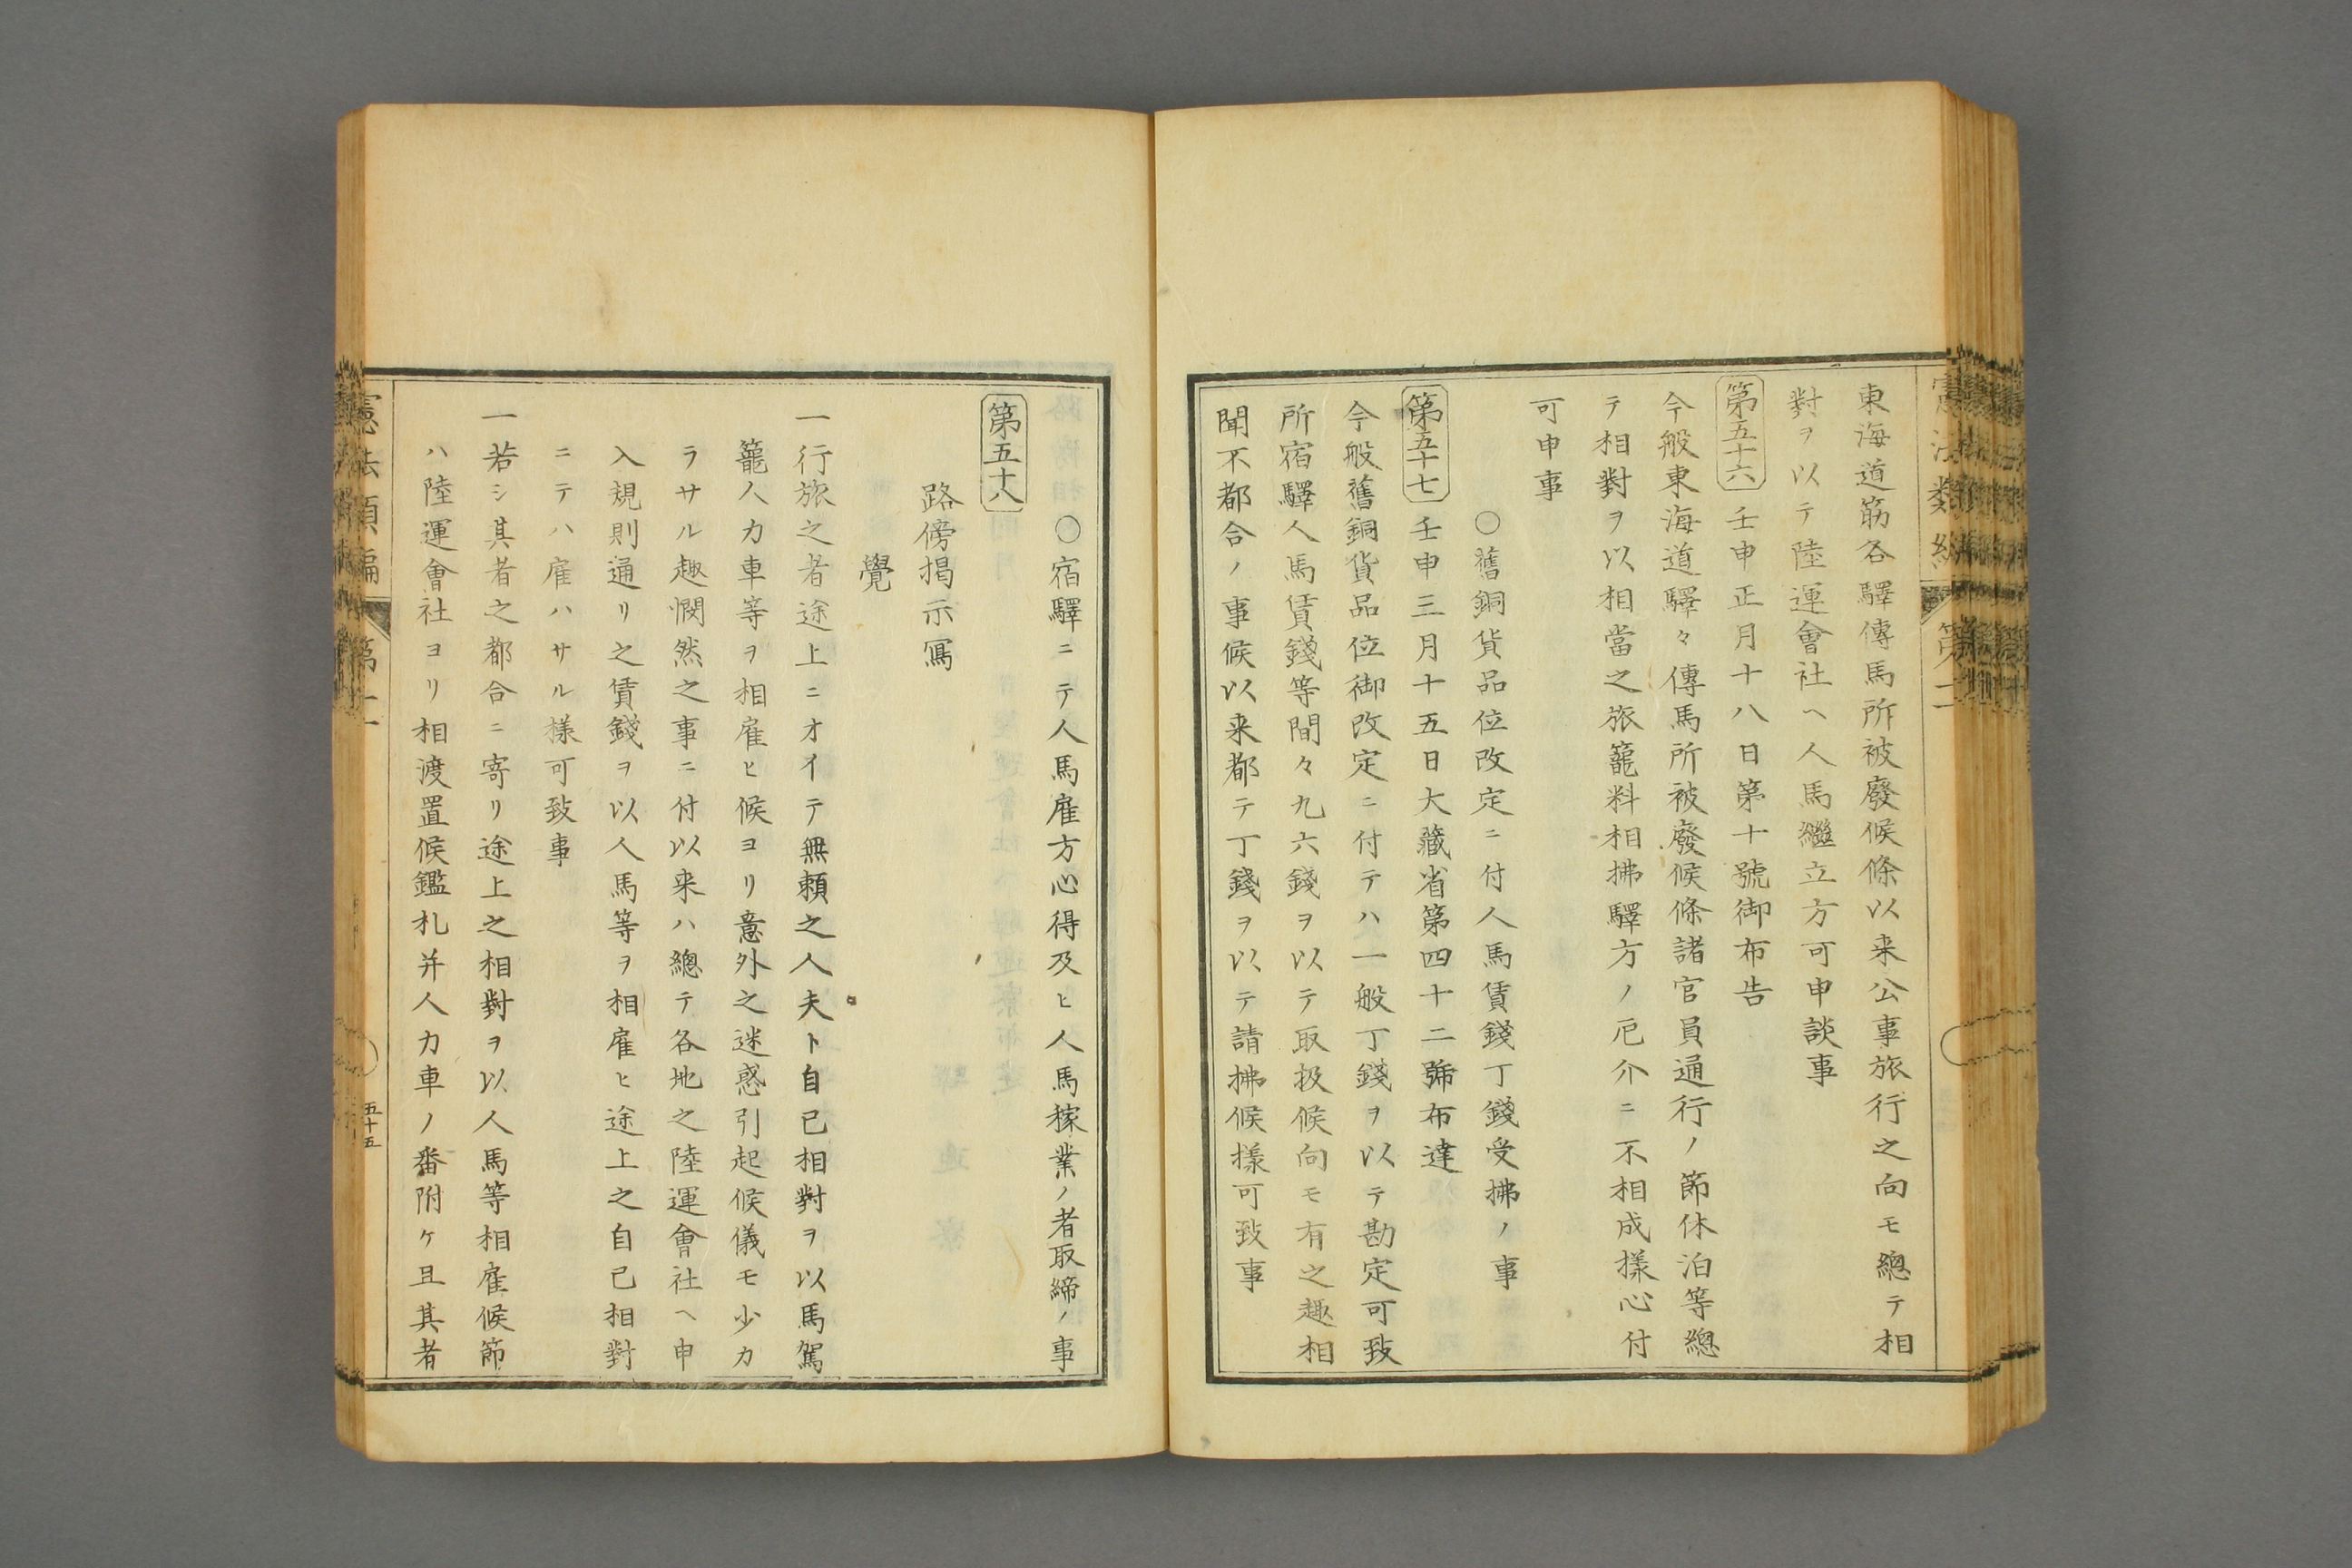 東海道筋各驛傳馬所被廢候條以来公事旅行之向モ總テ相
對ヲ以テ陸運會社ヘ人馬繼立方可申談事
第五十六 壬申正月十八日第十號御布告
今般東海道驛々傳馬所被廢候條諸官員通行ノ節休泊等總
テ相對ヲ以相當之旅籠料相拂驛方ノ厄介ニ不相成樣心付
可申事
〇舊銅貨品位改定ニ付人馬賃錢丁錢受拂ノ事
第五十七 壬申三月十五日大藏省第四十二號布達
今般舊銅貨品位御改定ニ付テハ一般丁錢ヲ以テ勘定可致
所宿驛人馬賃錢等間々九六錢ヲ以テ取扱候向モ有之趣相
聞不都合ノ事候以来都テ丁錢ヲ以テ請拂候樣可致事
〇宿驛ニテ人馬雇方心得及ヒ人馬稼業ノ者取締ノ事
第五十八
路傍掲示寫
覺
一行旅之者途上ニオイテ無頼之人夫ト自己相對ヲ以馬駕
籠人力車等ヲ相雇ヒ候ヨリ意外之迷惑引起候儀モ少カ
ラサル趣憫然之事ニ付以来ハ總テ各地之陸運會社ヘ申
入規則通リ之賃錢ヲ以人馬等ヲ相雇ヒ途上之自己相對
ニテハ雇ハサル樣可致事
一若シ其者之都合ニ寄リ途上之相對ヲ以人馬等相雇候節
ハ陸運會社ヨリ相渡置候鑑札并人力車ノ番附ケ且其者
憲法類編
第二
五十五